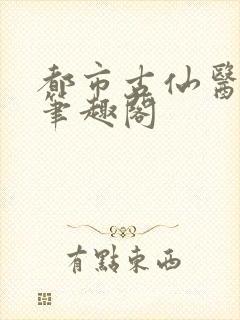 都市古仙醫
筆趣閣
有點東西